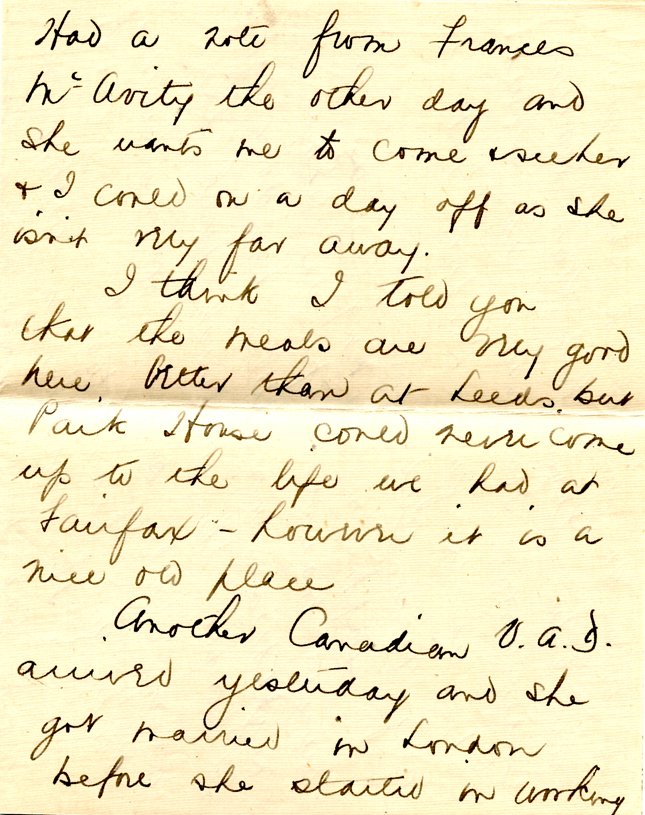 Had a note from Frances
Mc Avity the other day and
she wants me to come & see her
& I could on a day off as she
isn't very far away.
I think I told you
that the meals are very good
here better than at Leeds, but
Park House could never come
up to the life we had at
Fairfax - however it is a
nice old place
Another Canadian V.A.D.
arrived yesterday and she
got married in London
before she started in working